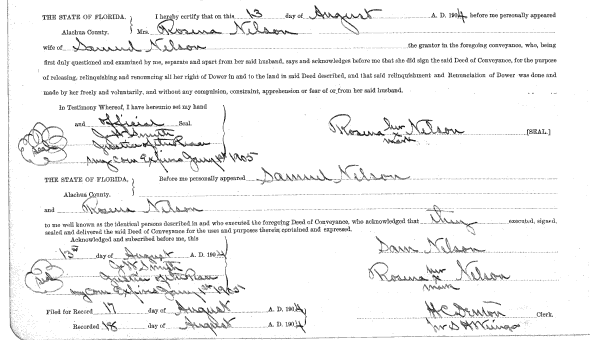 THE STATE OF FLORIDA. } I hereby certify that on this 13 day of August A. D. 1904 before me personally appeared
Alachua County. Mrs. Rosina Nilson
wife of Samuel Nilson the grantor in the foregoing conveyance, who, being
first duly questioned and examined by me, separate and apart from her said husband, says and acknowledges before me that she did sign the said Deed of Conveyance, for the purpose
of releasing, relinquishing and renouncing all her right of Dower in and to the land in said Deed described, and that said relinquishment and Renunciation of Dower was done and
made by her freely and voluntarily, and without any compulsion, constraint, apprehension or fear of or from her said husband.
In Testimony Whereof, I have hereunto set my hand
and official Seal.
J H Smith
Seal Justice of the Peace
My Com Expires Jany 1st 1905
Rosina her x mark Nelson [SEAL.]
THE STATE OF FLORIDA. } Before me personally appeared Samuel Nilson
Alachua County.
and Rosina Nilson
to me well known as the identical persons described in and who executed the foregoing Deed of Conveyance, who acknowledged that they executed, signed,
sealed and delivered the said Deed of Conveyance for the uses and purposes therein contained and expressed.
Acknowledged and subscribed before me, this
13th day of August A. D. 1904
J H Smith
Seal Justice of the Peace
My Com Expires Jany 1st 1905
Sam Nilson
Rosina her x mark Nelson
Filed for Record 17 day of August A. D. 1904
Recorded 18 day of August A. D. 1904
H. C. Denton Clerk.